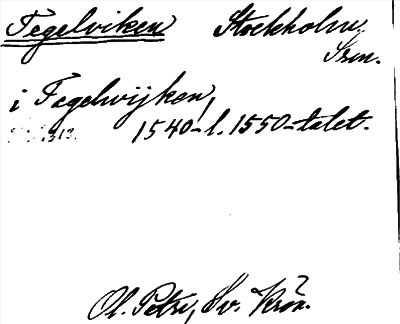 Tegelviken Stockholm
Srm.
i Tegelwijken,
1540-l. 1550-talet.
Ol. Petri, Sv. Krön.